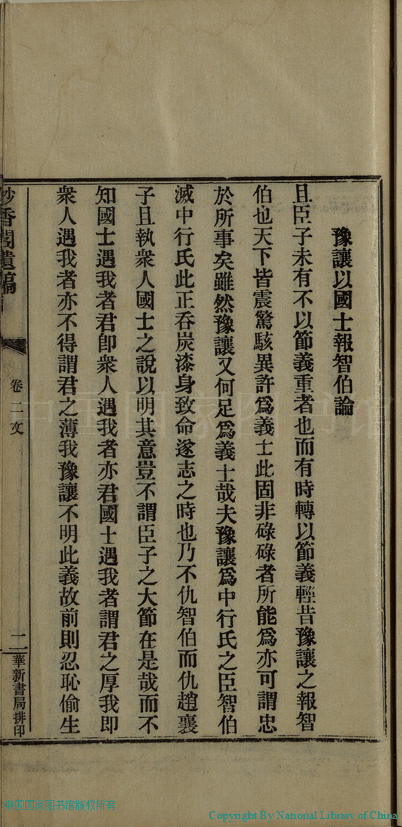 豫讓以國士報智伯論
且臣子未有不以節義重者也而有時轉以節義輕昔豫讓之報智
伯也天下皆震驚駭異許爲義士此固非碌碌者所能爲亦可謂忠
於所事矣雖然豫讓又何足爲義士哉夫豫讓爲中行氏之臣智伯
滅中行氏此正吞炭漆身致命遂志之時也乃不仇智伯而仇趙襄
子且執衆人國士之說以明其意豈不謂臣子之大節在是哉而不
知國士遇我者君卽衆人遇我者亦君國士遇我者謂君之厚我卽
衆人遇我者亦不得謂君之薄我豫讓不明此義故前則忍恥偷生
妙香閣遺稿
卷二文
一
華新書局排印
中国国家图书馆版权所有
Copyright By National Library of China